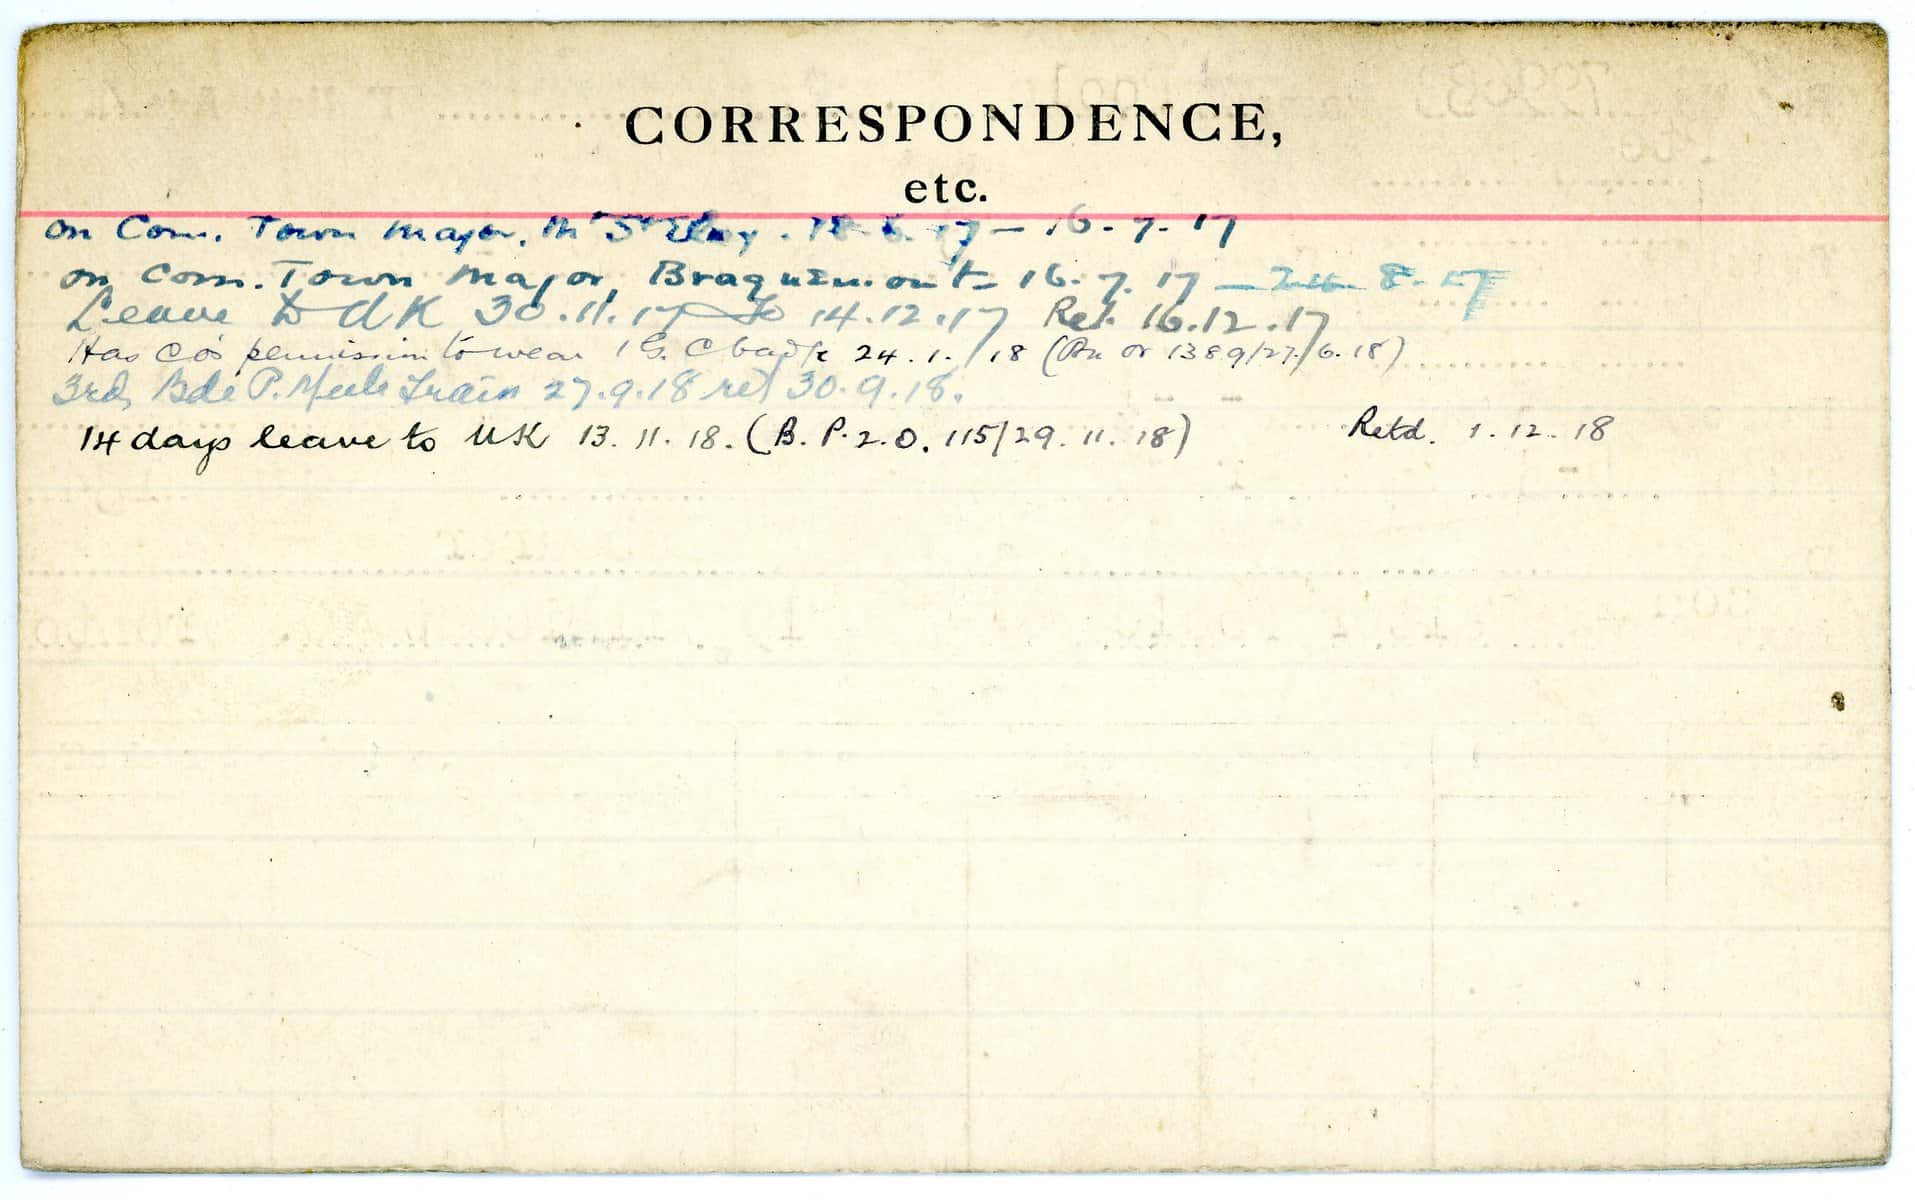 CORRESPONDENCE,
etc.
on Com. Town Major, Mt St Eloy. 18-6-17 - 16-7-17
on Com. Town Major, Braquemont - 16.7.17 - 24 8-17
Leave to UK 30.11.17 to 14.12.17 Ret. 16.12.17
Has CO's permission to wear 1 G.C badge 24.1./18 (Pn Or 1389/27/6.18)
3rd Bde P. Train 27.9.18 ret 30.9.18.
14 days leave to UK 13.11.18. (B.P.2.O. 115/29.11.18) Retd. 1.12.18